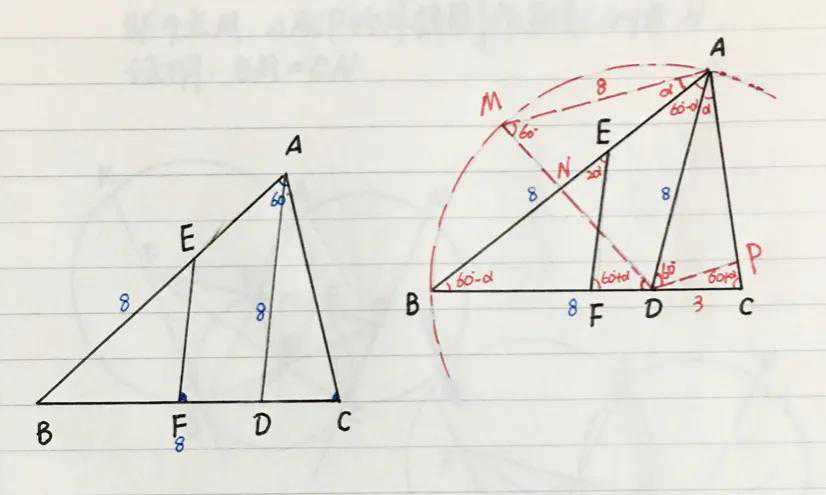 A
60°
E
8
8
B
F
D
C
8
A
8
M
α
60°
60°-α
α
E
N
2α
8
8
60°
P
60°-α
60°+α
B
8
F
D
3
C